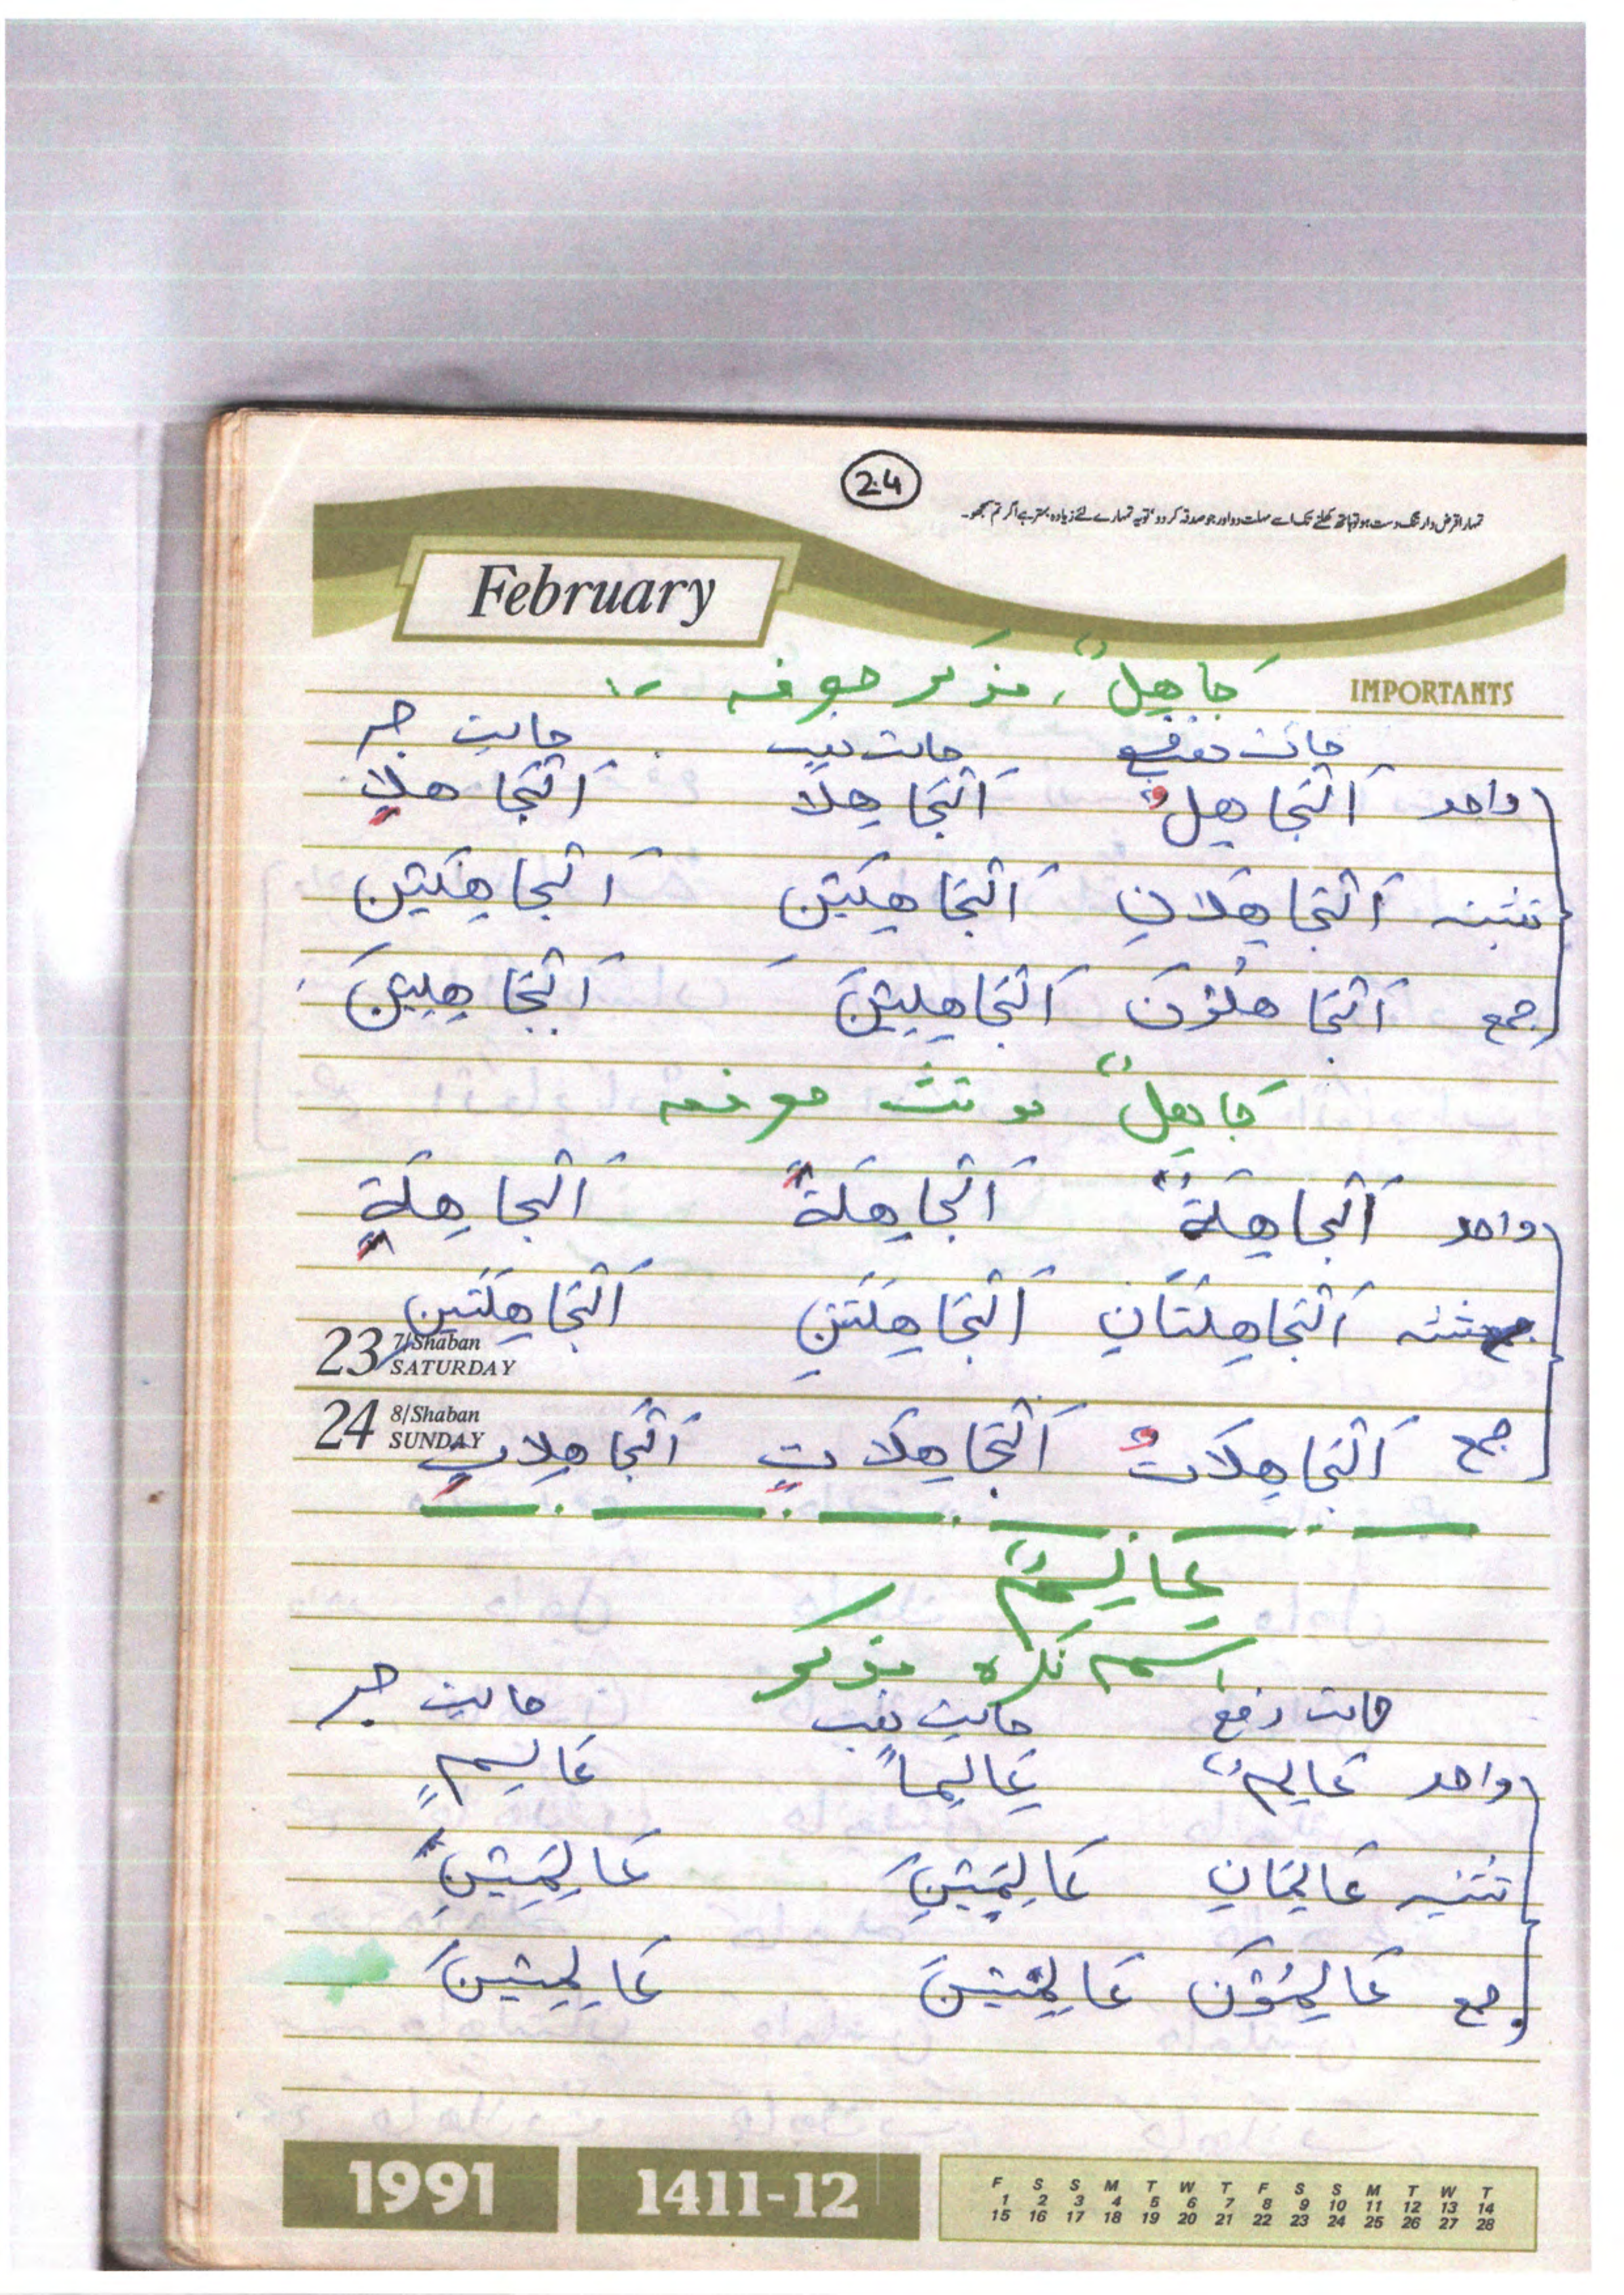 24
تمہارا قرض دار تنگ دست ہو تو ہاتھ کھلنے تک اسے مہلت دو اور جو صدقہ کر دو، تو یہ تمہارے لئے زیادہ بہتر ہے اگر تم سمجھو۔
February
IMPORTANTS
جَاهِلٌ، مذکر معرفہ :-
حالت رفع حالت نصب حالت جر
واحد اَلْجَاهِلُ اَلْجَاهِلَا اَلْجَاهِلِ
تثنیہ اَلْجَاهِلَانِ اَلْجَاهِلَيْنِ اَلْجَاهِلَيْنِ
جمع اَلْجَاهِلُوْنَ اَلْجَاهِلِيْنَ اَلْجَاهِلِيْنَ
جَاهِلٌ مونث معرفہ
واحد اَلْجَاهِلَةُ اَلْجَاهِلَةَ اَلْجَاهِلَةِ
تثنیہ اَلْجَاهِلَتَانِ اَلْجَاهِلَتَيْنِ اَلْجَاهِلَتَيْنِ
23 7/Shaban SATURDAY
24 8/Shaban SUNDAY
جمع اَلْجَاهِلَاتُ اَلْجَاهِلَاتِ اَلْجَاهِلَاتِ
عَالِمٌ
اسم نکرہ مذکر
حالت رفع حالت نصب حالت جر
واحد عَالِمٌ عَالِمًا عَالِمٍ
تثنیہ عَالِمَانِ عَالِمَيْنِ عَالِمَيْنِ
جمع عَالِمُوْنَ عَالِمِيْنَ عَالِمِيْنَ
1991 1411-12
F S S M T W T F S S M T W T
1 2 3 4 5 6 7 8 9 10 11 12 13 14
15 16 17 18 19 20 21 22 23 24 25 26 27 28